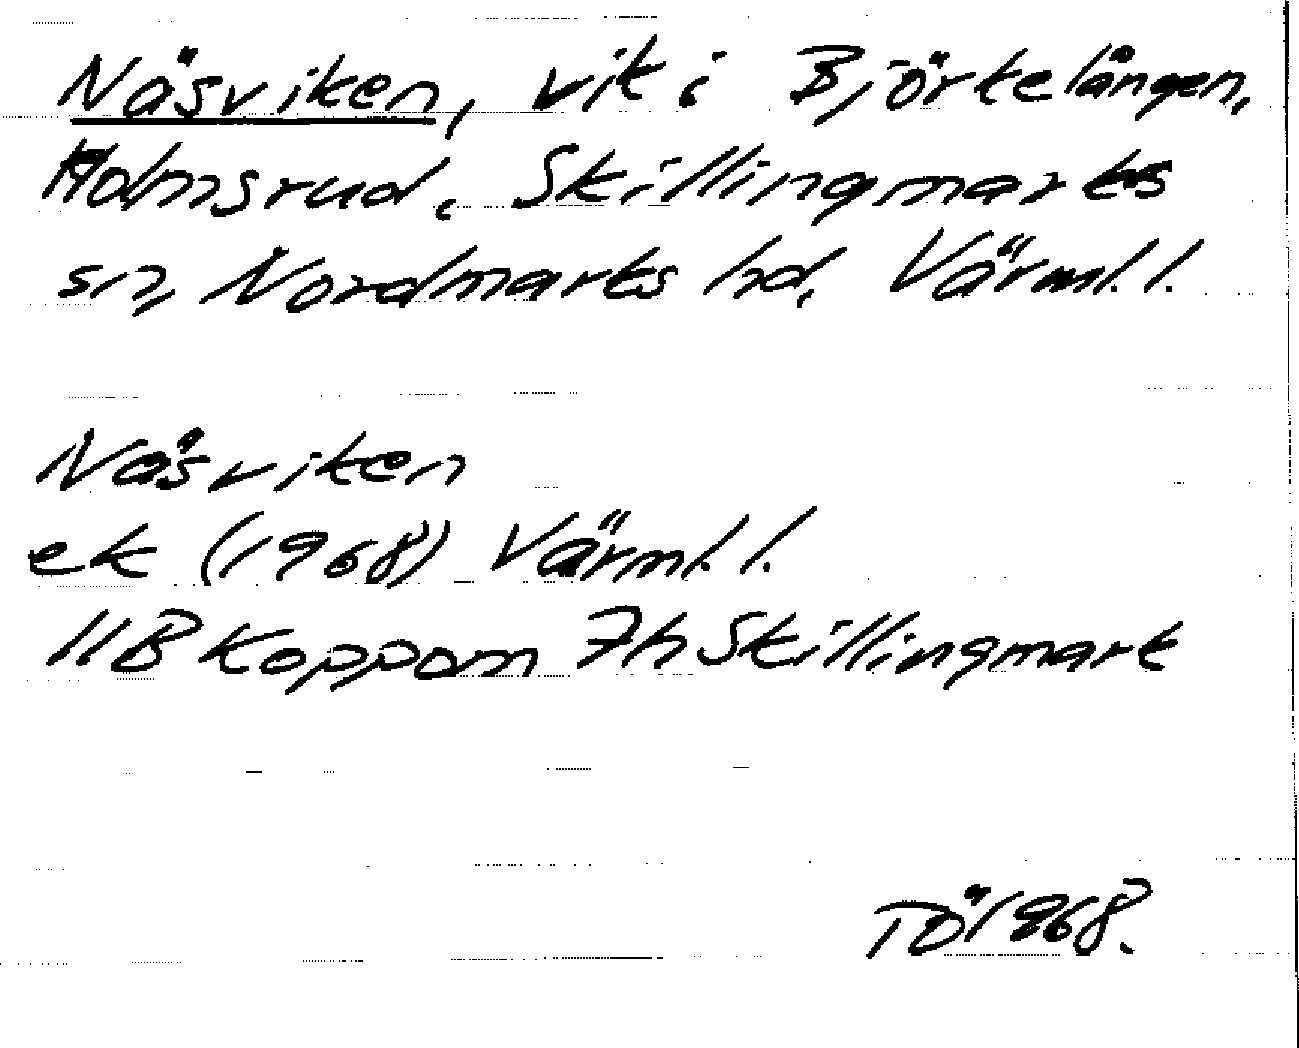 Näsviken, vik i Björkelången,
Holmsrud, Skillingmarks
sn, Nordmarks hd, Värml. l.
Näsviken
ek (1968) Värml. l.
11B Koppom 7h Skillingmark
TÖ 1968.